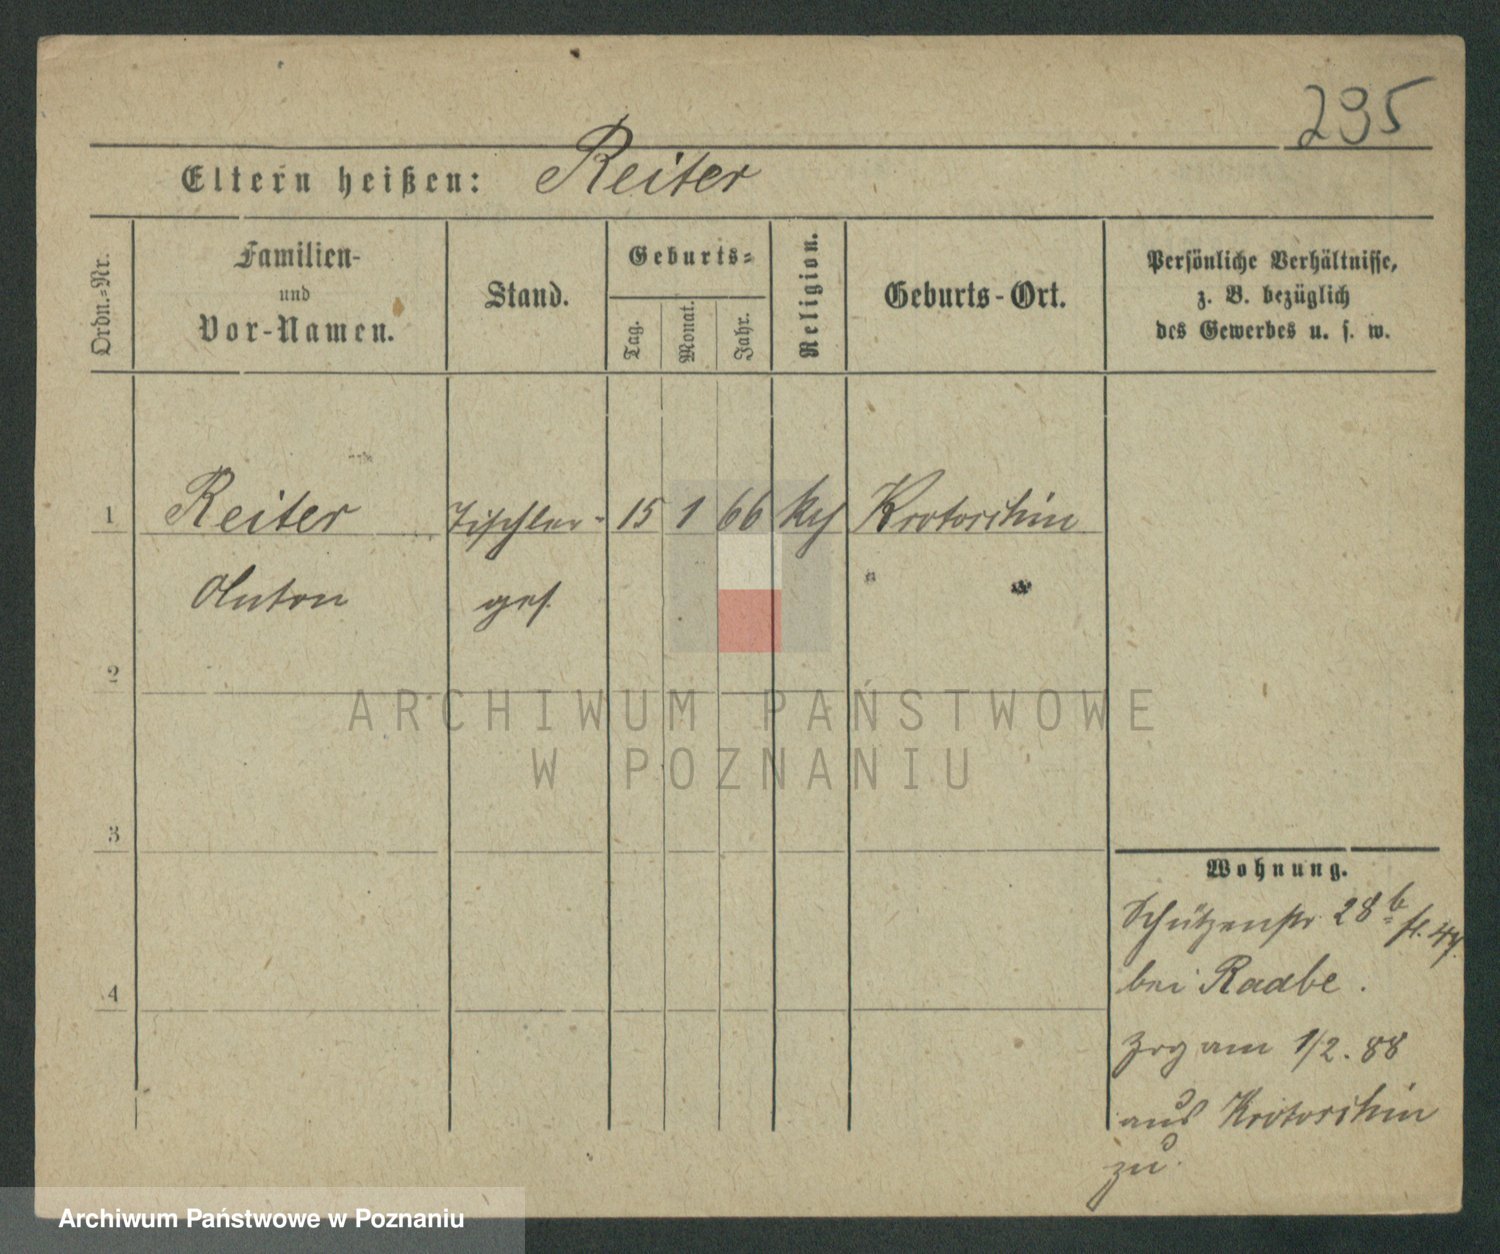 295
Eltern heißen: Reiter
Ordn.-Nr.
Familien-
und
Vor-Namen.
Stand.
Geburts-
Tag.
Monat.
Jahr.
Religion.
Geburts-Ort.
Persönliche Verhältnisse,
z. B. bezüglich
des Gewerbes u. s. w.
1 Reiter Tischler- 15 1 66 Krotoschin
Anton ges.
2
3
4
Wohnung.
Schützenstr 28 b
bei Raabe.
Zog am 1/2. 88
aus Krotoschin
zu.
ARCHIWUM PAŃSTWOWE
W POZNANIU
Archiwum Państwowe w Poznaniu